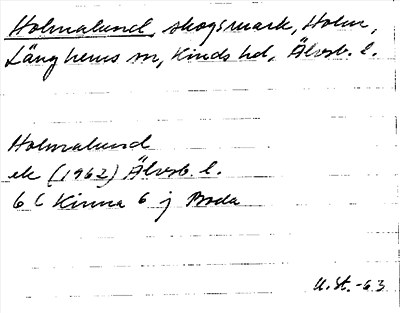 Holmalund, skogsmark, Holm,
Länghems sn, Kinds hd, Älvsb. l.
Holmalund
ek (1962) Älvsb. l.
6 C Kinna 6 j Boda
U.St. -63